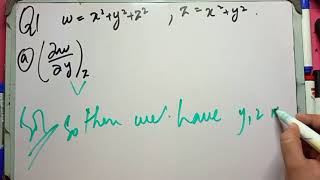 Q1 w = x²+y²+z² , z = x²+y².
(a) (∂w/∂y)_z
Sol So then we have y, z